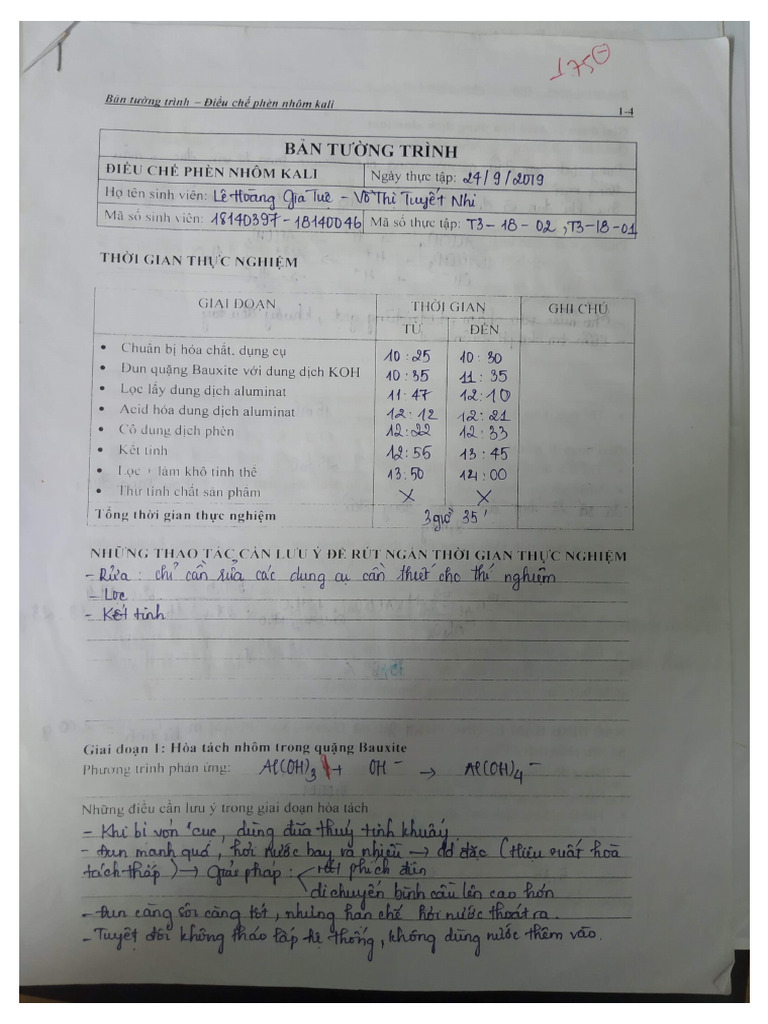 175
Bản tường trình – Điều chế phèn nhôm kali 1-4
BẢN TƯỜNG TRÌNH
ĐIỀU CHẾ PHÈN NHÔM KALI Ngày thực tập: 24/9/2019
Họ tên sinh viên: Lê Hoàng Gia Tuệ - Võ Thị Tuyết Nhi
Mã số sinh viên: 18140397 - 18140046 Mã số thực tập: T3-18-02, T3-18-01
THỜI GIAN THỰC NGHIỆM
GIAI ĐOẠN THỜI GIAN GHI CHÚ
TỪ ĐẾN
• Chuẩn bị hóa chất, dụng cụ 10:25 10:30
• Đun quặng Bauxite với dung dịch KOH 10:35 11:35
• Lọc lấy dung dịch aluminat 11:47 12:10
• Acid hóa dung dịch aluminat 12:12 12:21
• Cô dung dịch phèn 12:22 12:33
• Kết tinh 12:56 13:45
• Lọc + làm khô tinh thể 13:50 14:00
• Thử tính chất sản phẩm X X
Tổng thời gian thực nghiệm 3 giờ 35'
NHỮNG THAO TÁC CẦN LƯU Ý ĐỂ RÚT NGẮN THỜI GIAN THỰC NGHIỆM
- Rửa: chỉ cần rửa các dụng cụ cần thiết cho thí nghiệm
- Lọc
- Kết tinh
Giai đoạn 1: Hòa tách nhôm trong quặng Bauxite
Phương trình phản ứng: Al(OH)3 + OH- → Al(OH)4-
Những điều cần lưu ý trong giai đoạn hòa tách
- Khi bị vón cục, dùng đũa thuỷ tinh khuấy
- Đun mạnh quá, hơi nước bay ra nhiều → độ đặc (hiệu suất hoà
tách thấp) → Giải pháp: rút phích điện
di chuyển bình cầu lên cao hơn
- Đun càng sôi càng tốt, nhưng hạn chế hơi nước thoát ra.
- Tuyệt đối không tháo lắp hệ thống, không dùng nước thêm vào.